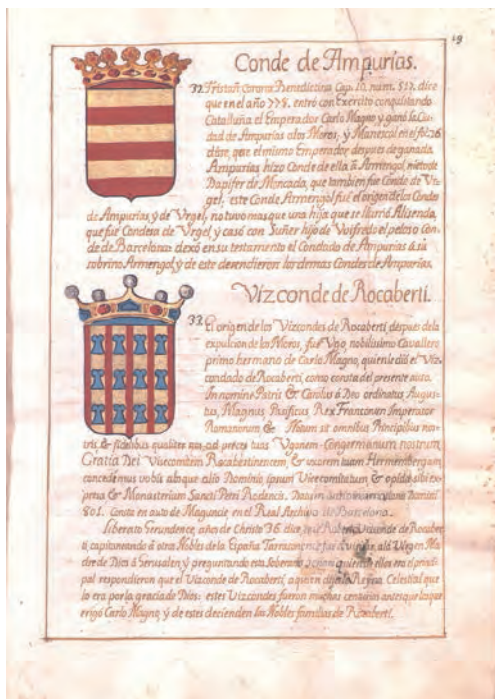 19
Conde de Ampurias.
32. Tristañ, corona Benedictina Cap. 10. num. 517. dice
que en el año 778. entró con Exército conquistando
Cataluña el Emperador Carlo Magno y ganó la Ciu-
dad de Ampurias a los Moros, y Manescal en el fol. 26
dice, que el mismo Emperador después de ganada
Ampurias hizo Conde de ella a Armengol, nieto de
Dapifer de Moncada, que tambien fue Conde de Vr-
gel, este Conde Armengol fué el origen de los Condes
de Ampurias, y de Vrgel, no tuvo mas que una hija que se llamó Alisenda,
que fué Condesa de Vrgel, y casó con Suñer hijo de Voifredo el peloso Con-
de de Barcelona: dexó en su testamento el Condado de Ampurias á su
sobrino Armengol, y de este decendieron los demas Condes de Ampurias.
Vizconde de Rocaberti.
33. El origen de los Vizcondes de Rocaberti después de la
expulcion de los Moros, fué Vgo, nobilisimo Cavallero
primo hermano de Carlo Magno, quien le dió el Viz-
condado de Rocaberti, como consta del presente auto.
In nomine Patris & Carolus á Deo ordinatus Augus-
tus, Magnus Pacificus Rex Francorum Imperator
Romanorum & Notum sit omnibus Principibus nos-
tris & fidelibus qualiter nos ad preces tuas Vgonem Congermanum nostrum,
Gratia Dei Vicecomitem Rocabertinencem, & uxorem tuam Hermembergam
concedemus vobis absque alio Dominio, ipsum Vicecomitatum & opida sibi ex-
pretas & Monasterium Sancti Petri Rodencis. Datum
801. Consta en auto de Maguncie en el Real Archivo de Barcelona.
Liberato Gerundence, años de Christo 36. dice, que Vizconde de Rocaber-
ti, capitaneando á otros Nobles de la España Tarraconence fué á la Vírgen Ma-
dre de Dios á Jerusalen, y preguntando esta Soberana quien de ellos era el princi-
pal respondieron que el Vizconde de Rocaberti, a quien Reyna Celestial que
lo era por la gracia de Dios: estos Vizcondes fueron muchas centurias antes que los que
erigió Carlo Magno, y de estos decienden las Nobles familias de Rocaberti.